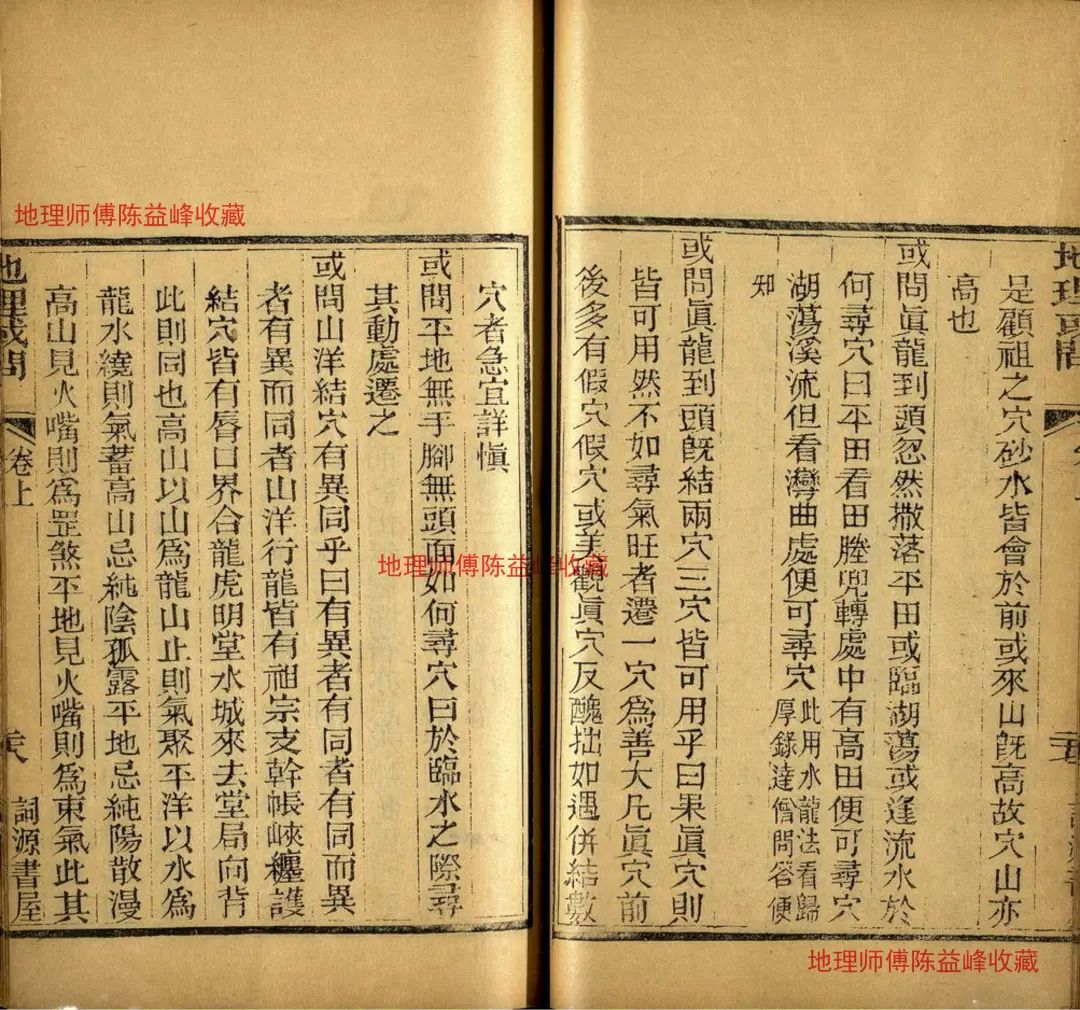 是顧祖之穴砂水皆會於前或來山旣高故穴山亦
高也
或問眞龍到頭忽然撒落平田或臨湖蕩或逢流水於
何尋穴曰平田看田塍兜轉處中有高田便可尋穴
湖蕩溪流但看灣曲處便可尋穴此用水龍法看歸厚錄達僧問答便
知
或問眞龍到頭旣結兩穴三穴皆可用乎曰果眞穴則
皆可用然不如尋氣旺者遷一穴爲善大凡眞穴前
後多有假穴假穴或美觀眞穴反醜拙如遇併結數
穴者急宜詳愼
或問平地無手腳無頭面如何尋穴曰於臨水之際尋
其動處遷之
或問山洋結穴有異同乎曰有異者有同者有同而異
者有異而同者山洋行龍皆有祖宗支幹帳峽纏護
結穴皆有唇口界合龍虎明堂水城來去堂局向背
此則同也高山以山爲龍山止則氣聚平洋以水爲
龍水繞則氣蓄高山忌純陰孤露平地忌純陽散漫
高山見火嘴則爲罡煞平地見火嘴則爲束氣此其
地理或問
卷上
詞源書屋
地理师傅陈益峰收藏
地理师傅陈益峰收藏
地理师傅陈益峰收藏